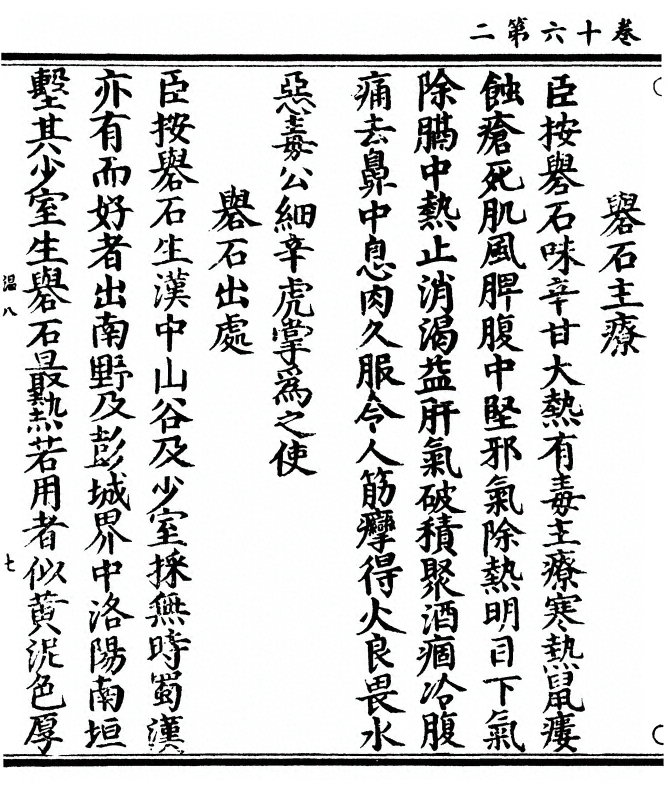 卷十六第二
礜石主療
臣按礜石味辛甘大熱有毒主療寒熱鼠瘻
蝕瘡死肌風脾腹中堅邪氣除熱明目下氣
除膈中熱止消渴益肝氣破積聚酒痼冷腹
痛去鼻中息肉久服令人筋攣得火良畏水
惡毒公細辛虎掌為之使
礜石出處
臣按礜石生漢中山谷及少室採無時蜀漢
亦有而好者出南野及彭城界中洛陽南垣
壍其少室生礜石最熱若用者似黃泥色厚
溫八
七